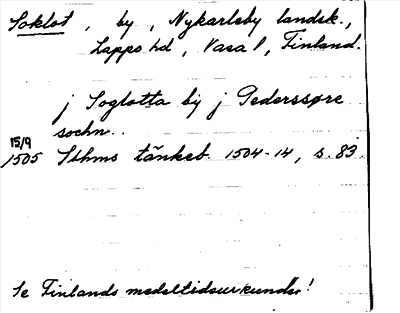 Soklot, by, Nykarleby landsk.,
Lappo hd, Vasa l, Finland.
j Soglotta by j Pederssøre
sochn..
15/9
1505 Sthms tänkeb. 1504-14, s. 83.
Se Finlands medeltidsurkunder!